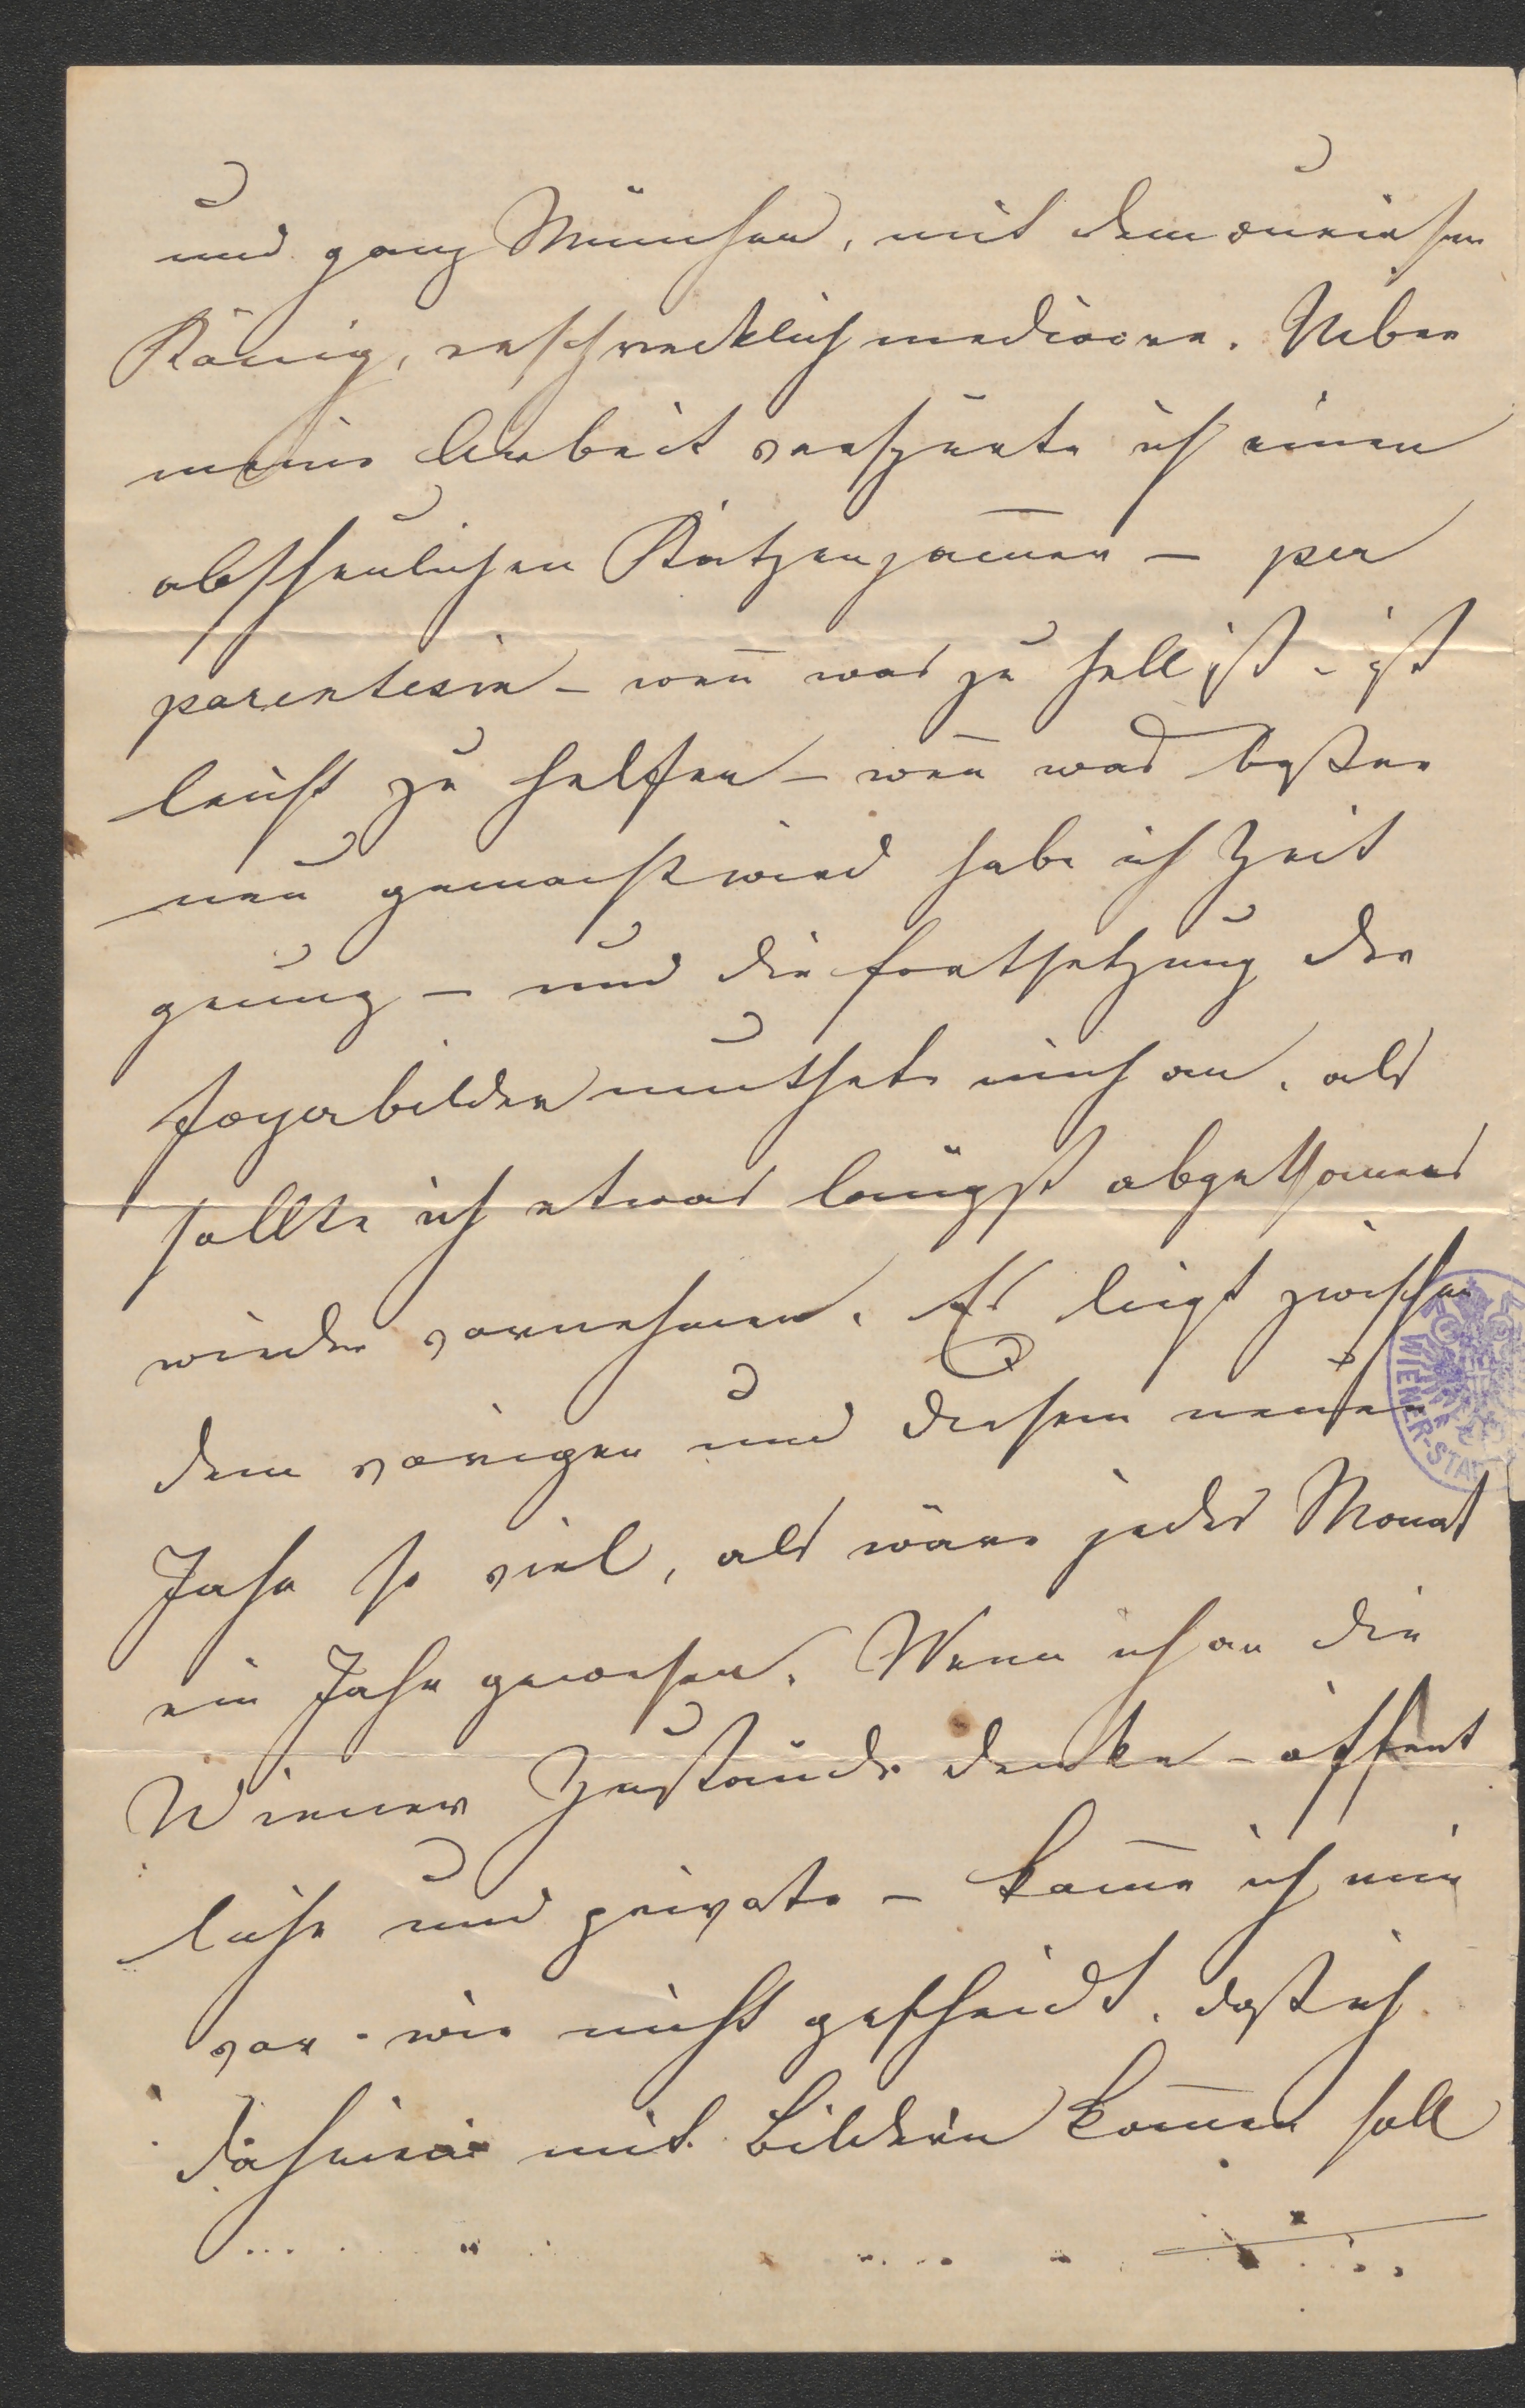 und ganz München, mit dem
König, erschrecklich mediocre. Ueber
meine Arbeit verspürte ich einen
abscheulichen Katzenjam̄er – per
parentesin – wen̄ was zu hell ist – ist
leicht zu helfen – wen̄ was besser
neu gemacht wird habe ich Zeit
genug – und die Fortsetzung der
Foyerbilder muthete mich an, als
sollte ich etwas längst abgethanes
wieder vornehmen. Es liegt zwischen
dem vorigen und diesem neuen
Jahr so viel, als wäre jeder Monat
ein Jahr gewesen. Wenn ich an die
Wiener Zustände denke – öffent
liche und private – kom̄e ich mir
vor – wie nicht gescheidt, daß ich
da mit Bildern kom̄en soll
WIENER-STADT